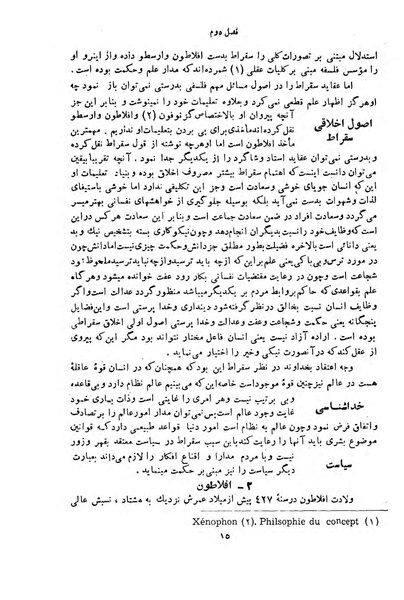 فصل دوم
استدلال مبتنی بر تصورات کلی را سقراط بدست افلاطون وارسطو داده واز اینرو او
را مؤسس فلسفه مبتنی بر کلیات عقلی (۱) شمرده‌اند که مدار علم وحکمت بوده است.
اما عقاید سقراط را در مسائل مهم فلسفی بدرستی نمی‌توان باز نمود چه
اوهرگز اظهار علم قطعی نمی‌کرد وبعلاوه تعلیمات خود را نمینوشت و بنابر این جز
اصول اخلاقی
سقراط
آنچه پیروان او بالاختصاص گزنوفون (۲) وافلاطون وارسطو
نقل کرده‌اند مأخذی برای پی بردن بتعلیمات او نداریم. مهمترین
مطلب این است اما اوهرچه نوشته از قول سقراط نقل کرده
وبدرستی نمی‌توان عقاید استاد وشاگرد را از یکدیگر جدا نمود. آنچه تقریبا بیقین
می‌توان دانست اینست که اهتمام سقراط بیشتر مصروف اخلاق بوده و بنیاد تعلیمات او
این که انسان جویای خوشی وسعادت است وجز این تکلیفی ندارد اما خوشی باستیفای
لذات وشهوات بدست نمی‌آید بلکه بوسیله جلوگیری از خواهشهای نفسانی بهتر میسر
می‌گردد وسعادت افراد در ضمن سعادت جماعت است و بنابر این سعادت هر کس در این
است که وظایف خود را نسبت بدیگران انجام دهد وچون نیکوکاری بسته بتشخیص نیك و بد
یعنی دانائی است بالاخره فضیلت بطور مطلق جز دانش وحکمت چیزی نیست اما دانش چون
در مورد ترس و بی‌باکی یعنی علم بر اینکه از چه باید ترسید واز چه نباید ترسید ملحوظ شود
شجاعت است وچون در رعایت مقتضیات نفسانی بکار رود عفت خوانده میشود وهرگاه
علم بقواعدی که حاکم بر روابط مردم بر یکدیگر میباشد منظور گردد عدالت است واگر
وظایف انسان نسبت بخالق در نظر گرفته شود دینداری وخدا پرستی است واین فضایل
پنجگانه یعنی حکمت وشجاعت وعفت وعدالت وخدا پرستی اصول اولی اخلاق سقراطی
بوده است. اراده آزاد نیست یعنی انسان فاعل مختار نتواند بود مگر این که پیروی
از عقل کند که در آنصورت نیکی وخیر را اختیار می‌نماید.
وجه اعتقاد بخداوند در نظر سقراط این بود که همچنان که در انسان قوهٔ عاقله
خداشناسی
هست در عالم نیز چنین قوهٔ موجود است خاصه این که می‌بینیم عالم نظام دارد و بی‌قاعده
و بی ترتیب نیست وهر امری را غایتی است وذات باری خود
غایت وجود عالم است ونمی‌توان مدار امور عالم را بر تصادف
واتفاق فرض نمود وچون عالم به نظام است امور دنیا قواعد طبیعی دارد که قوانین
سیاست
موضوع بشری باید آنها را رعایت کند باین سبب سقراط در سیاست معتقد بقهر وزور
نیست و با مردم مدارا و اقناع افکار را لازم می‌داند بعبارت
دیگر سیاست را نیز مبنی بر حکمت مینماید.
۲ - افلاطون
ولادت افلاطون در سنهٔ ٤٢٧ ق.م ومیلاد عمرش نزدیك به هشتاد، نسبش عالی
Xénophon (۲). Philsophie du concept (۱)
۱۵